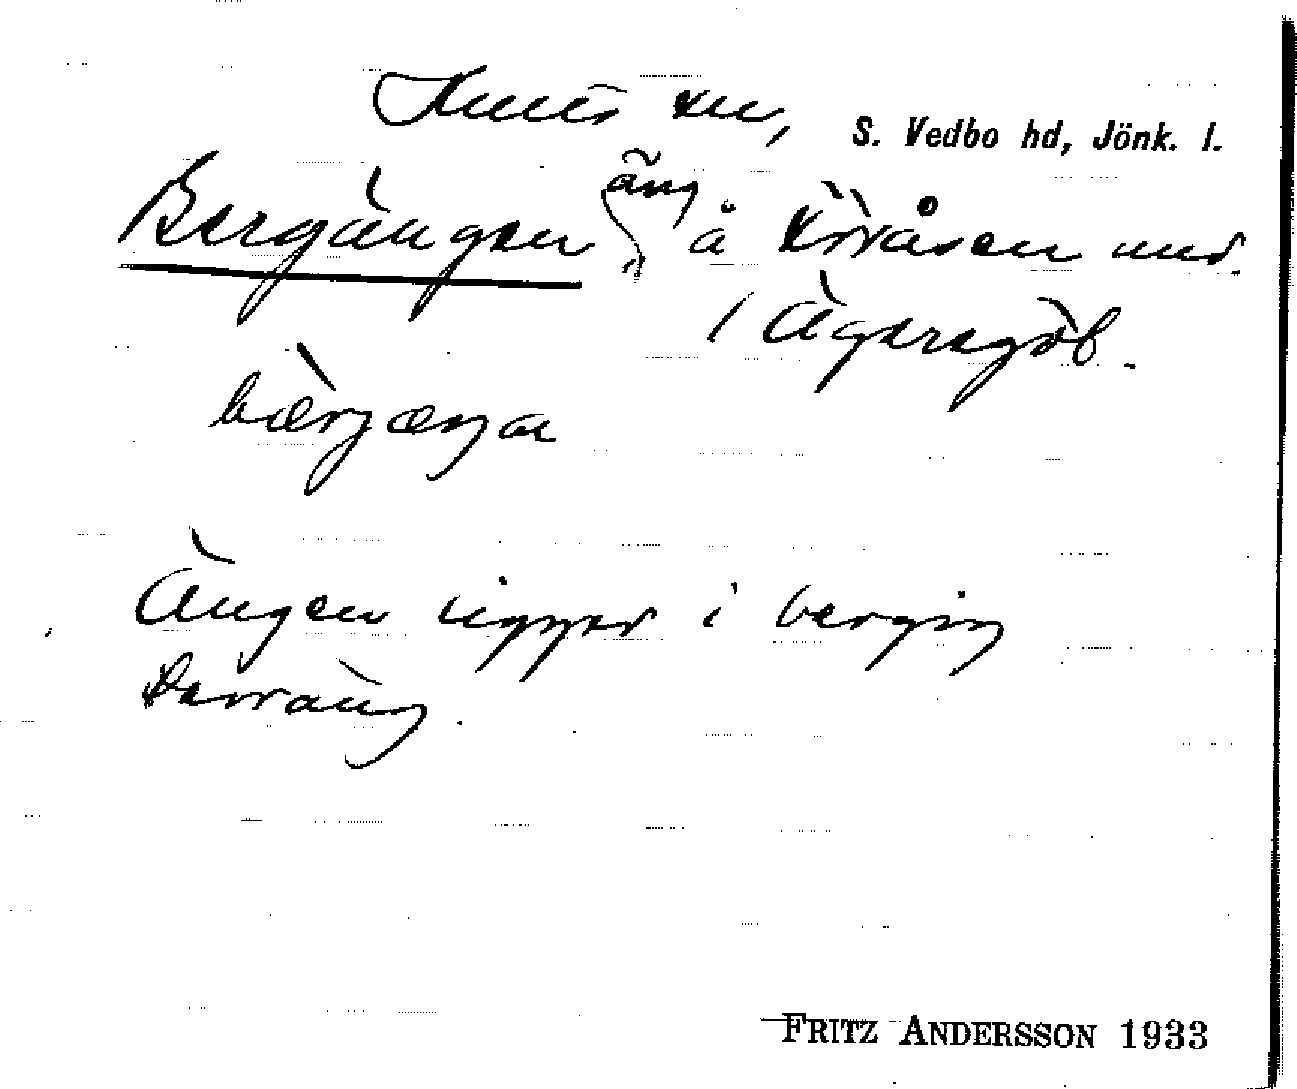 Hults sn, S. Vedbo hd, Jönk. l.
Bergängen äng å und.
/ Ägersgöl.
bæ̀rjæŋa
Ängen ligger i bergig
terräng.
FRITZ ANDERSSON 1933